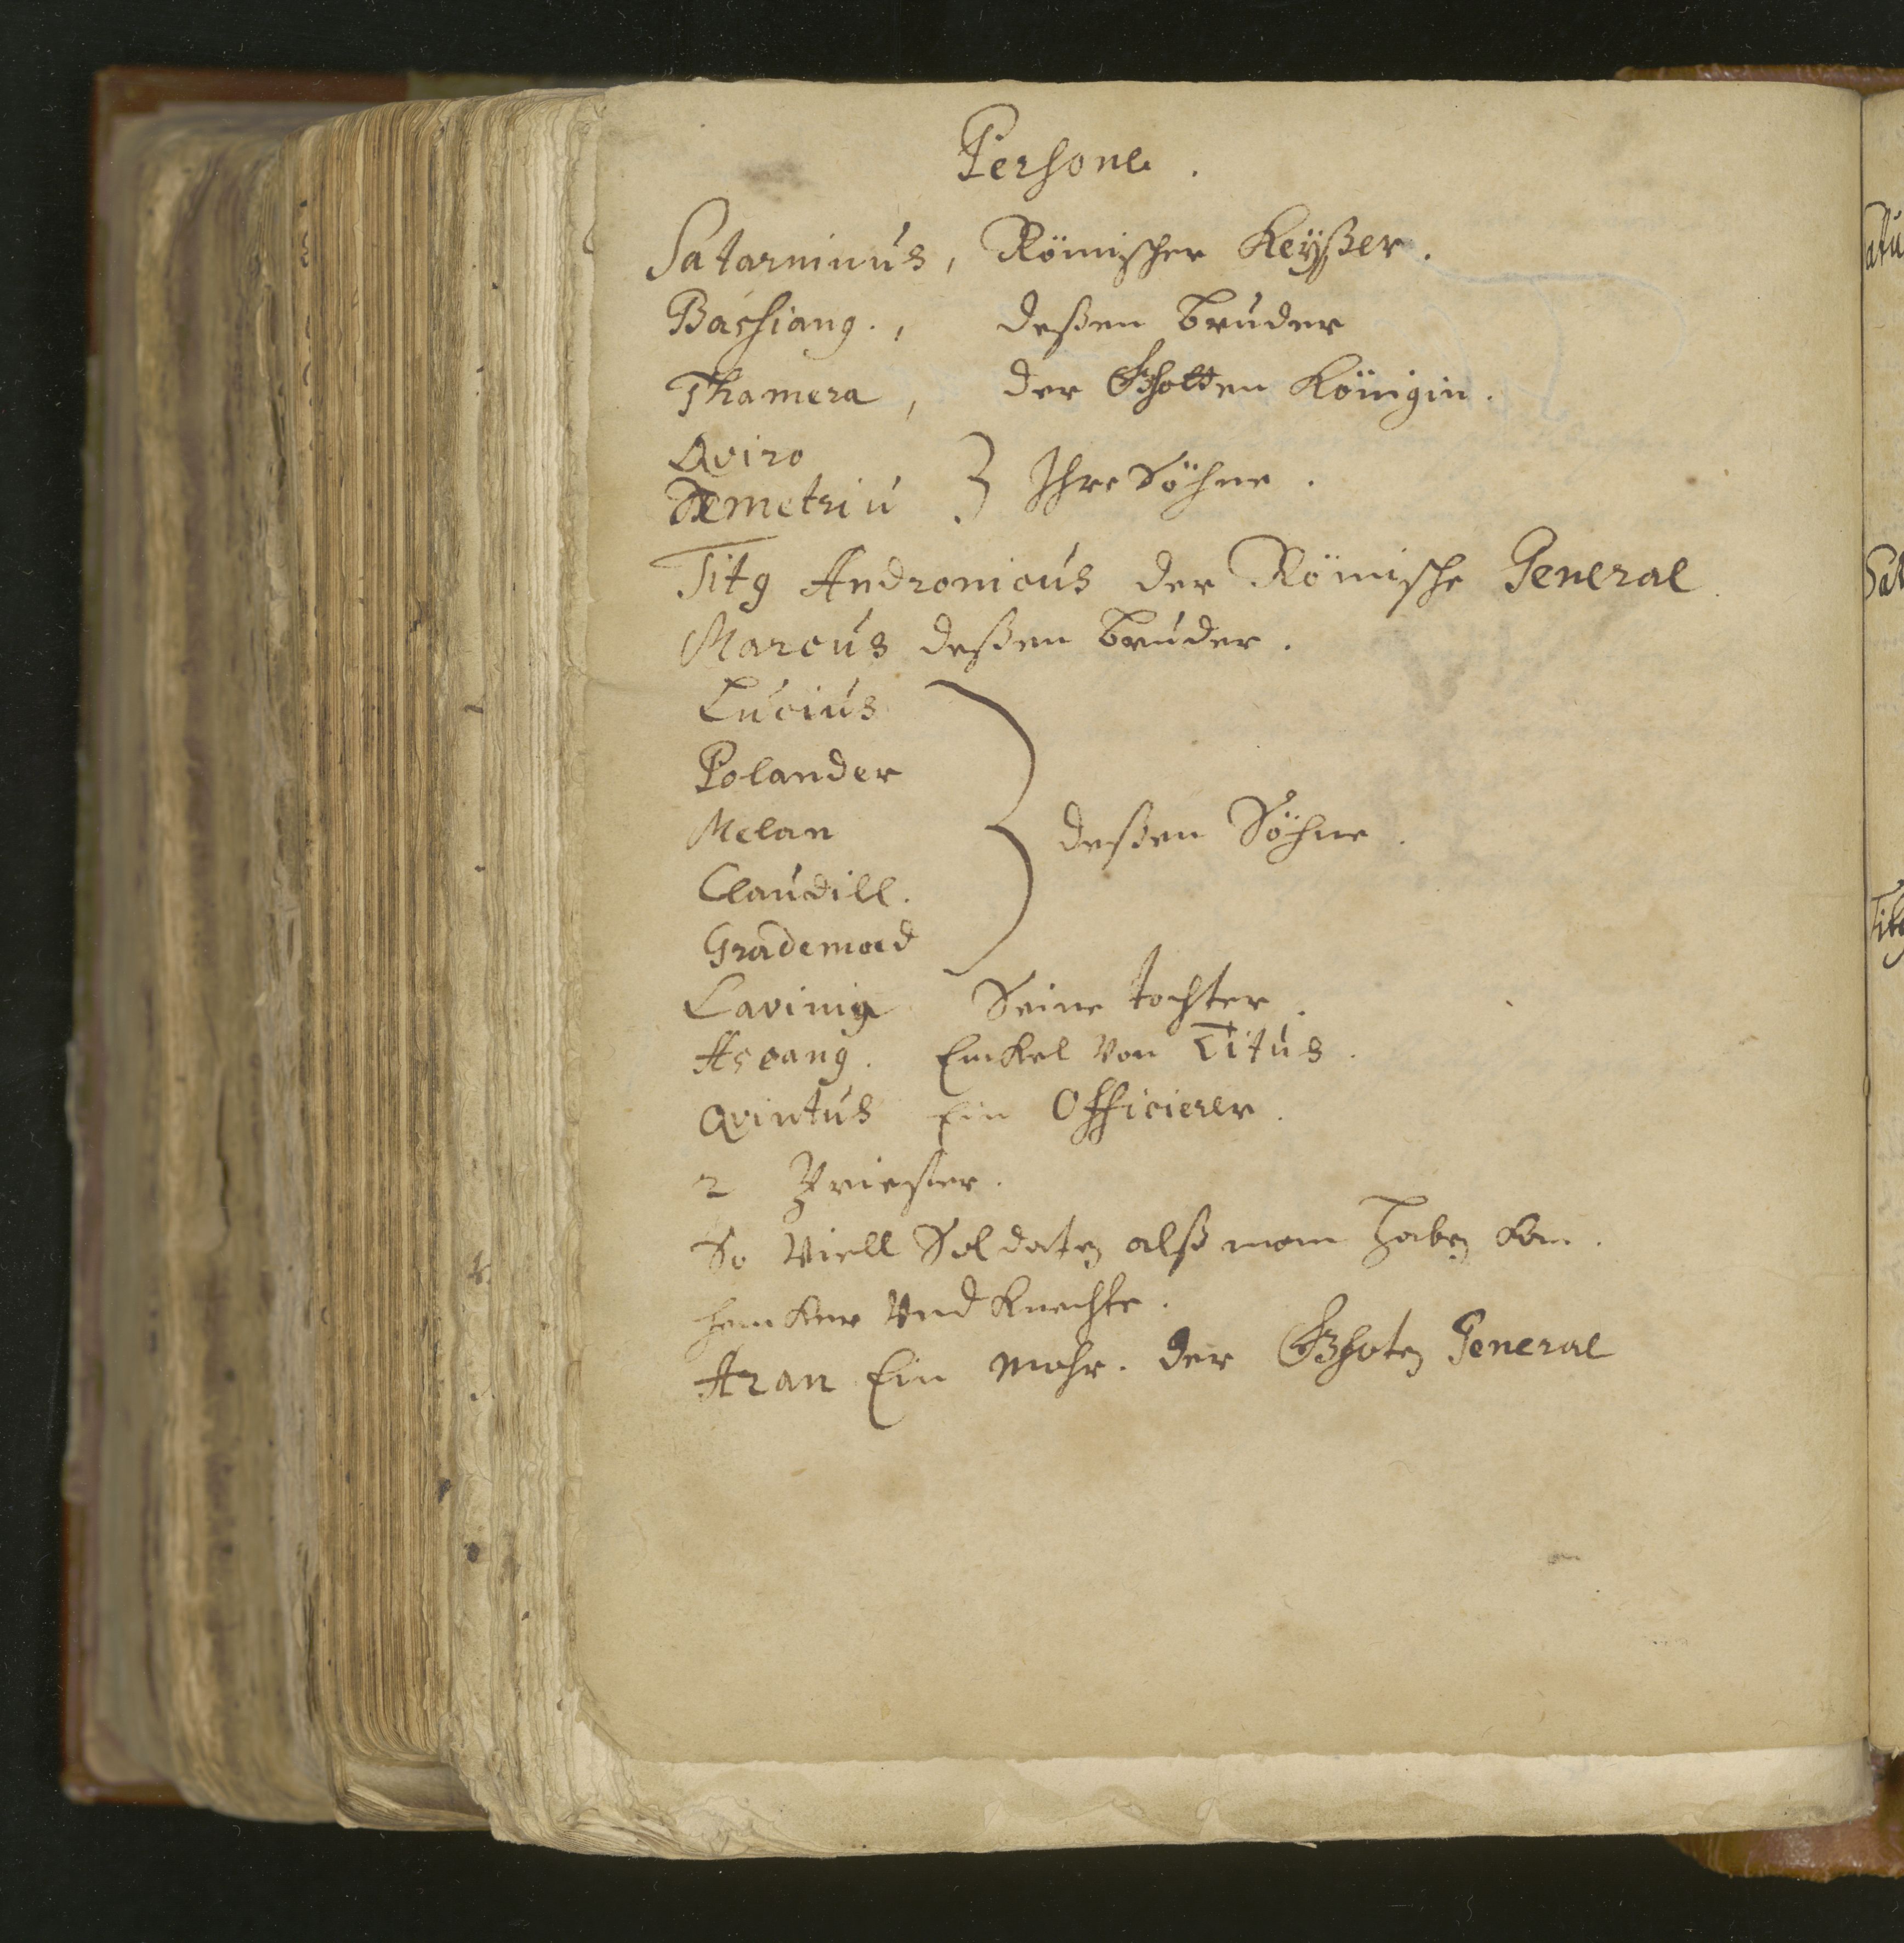 Persone.
Satarninus, Römischer Keyßer.
Bassianꝯ., deßen bruder
Thamera, der Gholtten Königin.
Qviro
Demetriu } Ihre Söhne.
Titꝯ Andronicus der Römische General
Marcus deßen bruder.
Lucius
Polander
Melan
deßen Söhne.
Claudill.
Grademard
Lavinia Seine tochter.
Ascanꝯ. Enckel von Titus.
Qvintus Ein Officierer.
2 Priester.
So Viell Soldaten alß man haben kan.
hencker Vnd knechte.
Aran Ein mohr. der Ghoten General